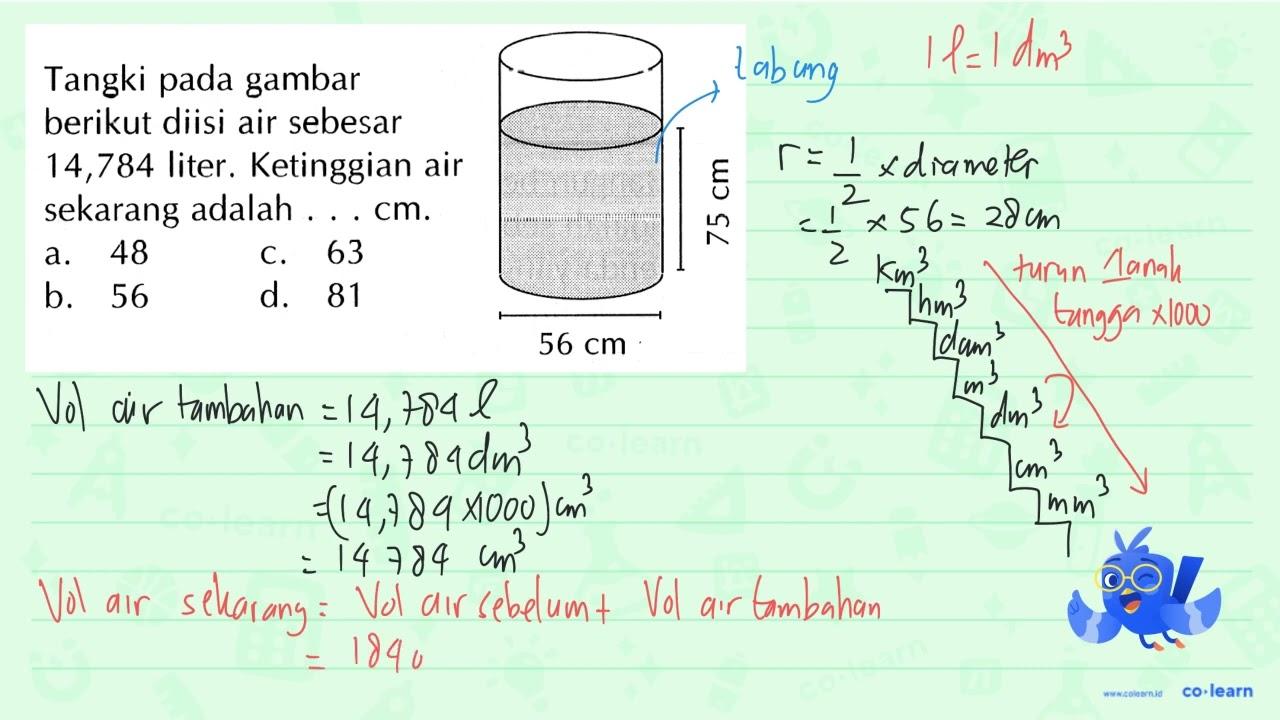 Tangki pada gambar
berikut diisi air sebesar
14,784 liter. Ketinggian air
sekarang adalah . . . cm.
a. 48 c. 63
b. 56 d. 81
75 cm
56 cm
tabung
1 l = 1 dm³
r = 1/2 x diameter
= 1/2 x 56 = 28 cm
km³
hm³
dam³
m³
dm³
cm³
mm³
turun 1 anak
tangga x1000
Vol air tambahan = 14,784 l
= 14,784 dm³
= (14,784 x1000) cm³
= 14784 cm³
Vol air sekarang = Vol air sebelum + Vol air tambahan
= 184
co·learn
www.colearn.id co·learn